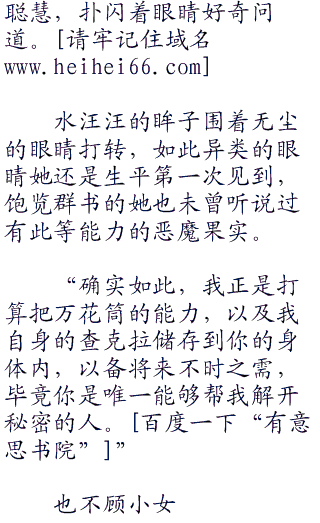 聪慧，扑闪着眼睛好奇问
道。[请牢记住域名
www.heihei66.com]
水汪汪的眸子围着无尘
的眼睛打转，如此异类的眼
睛她还是生平第一次见到，
饱览群书的她也未曾听说过
有此等能力的恶魔果实。
“确实如此，我正是打
算把万花筒的能力，以及我
自身的查克拉储存到你的身
体内，以备将来不时之需，
毕竟你是唯一能够帮我解开
秘密的人。[百度一下“有意
思书院”]”
也不顾小女